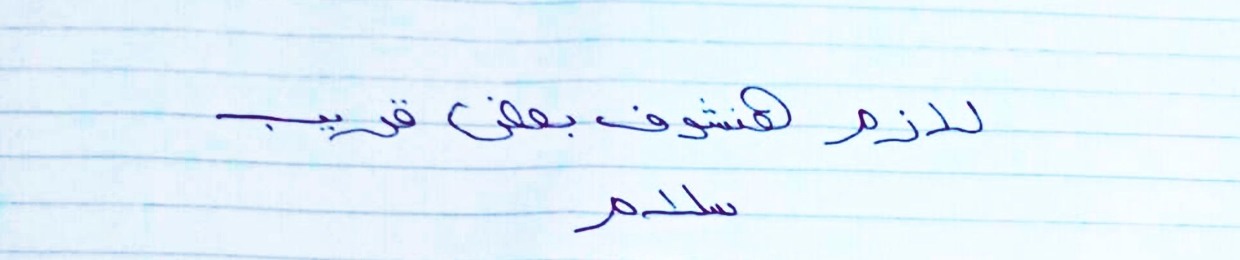 لازم هنشوف بعض قريب
سلام